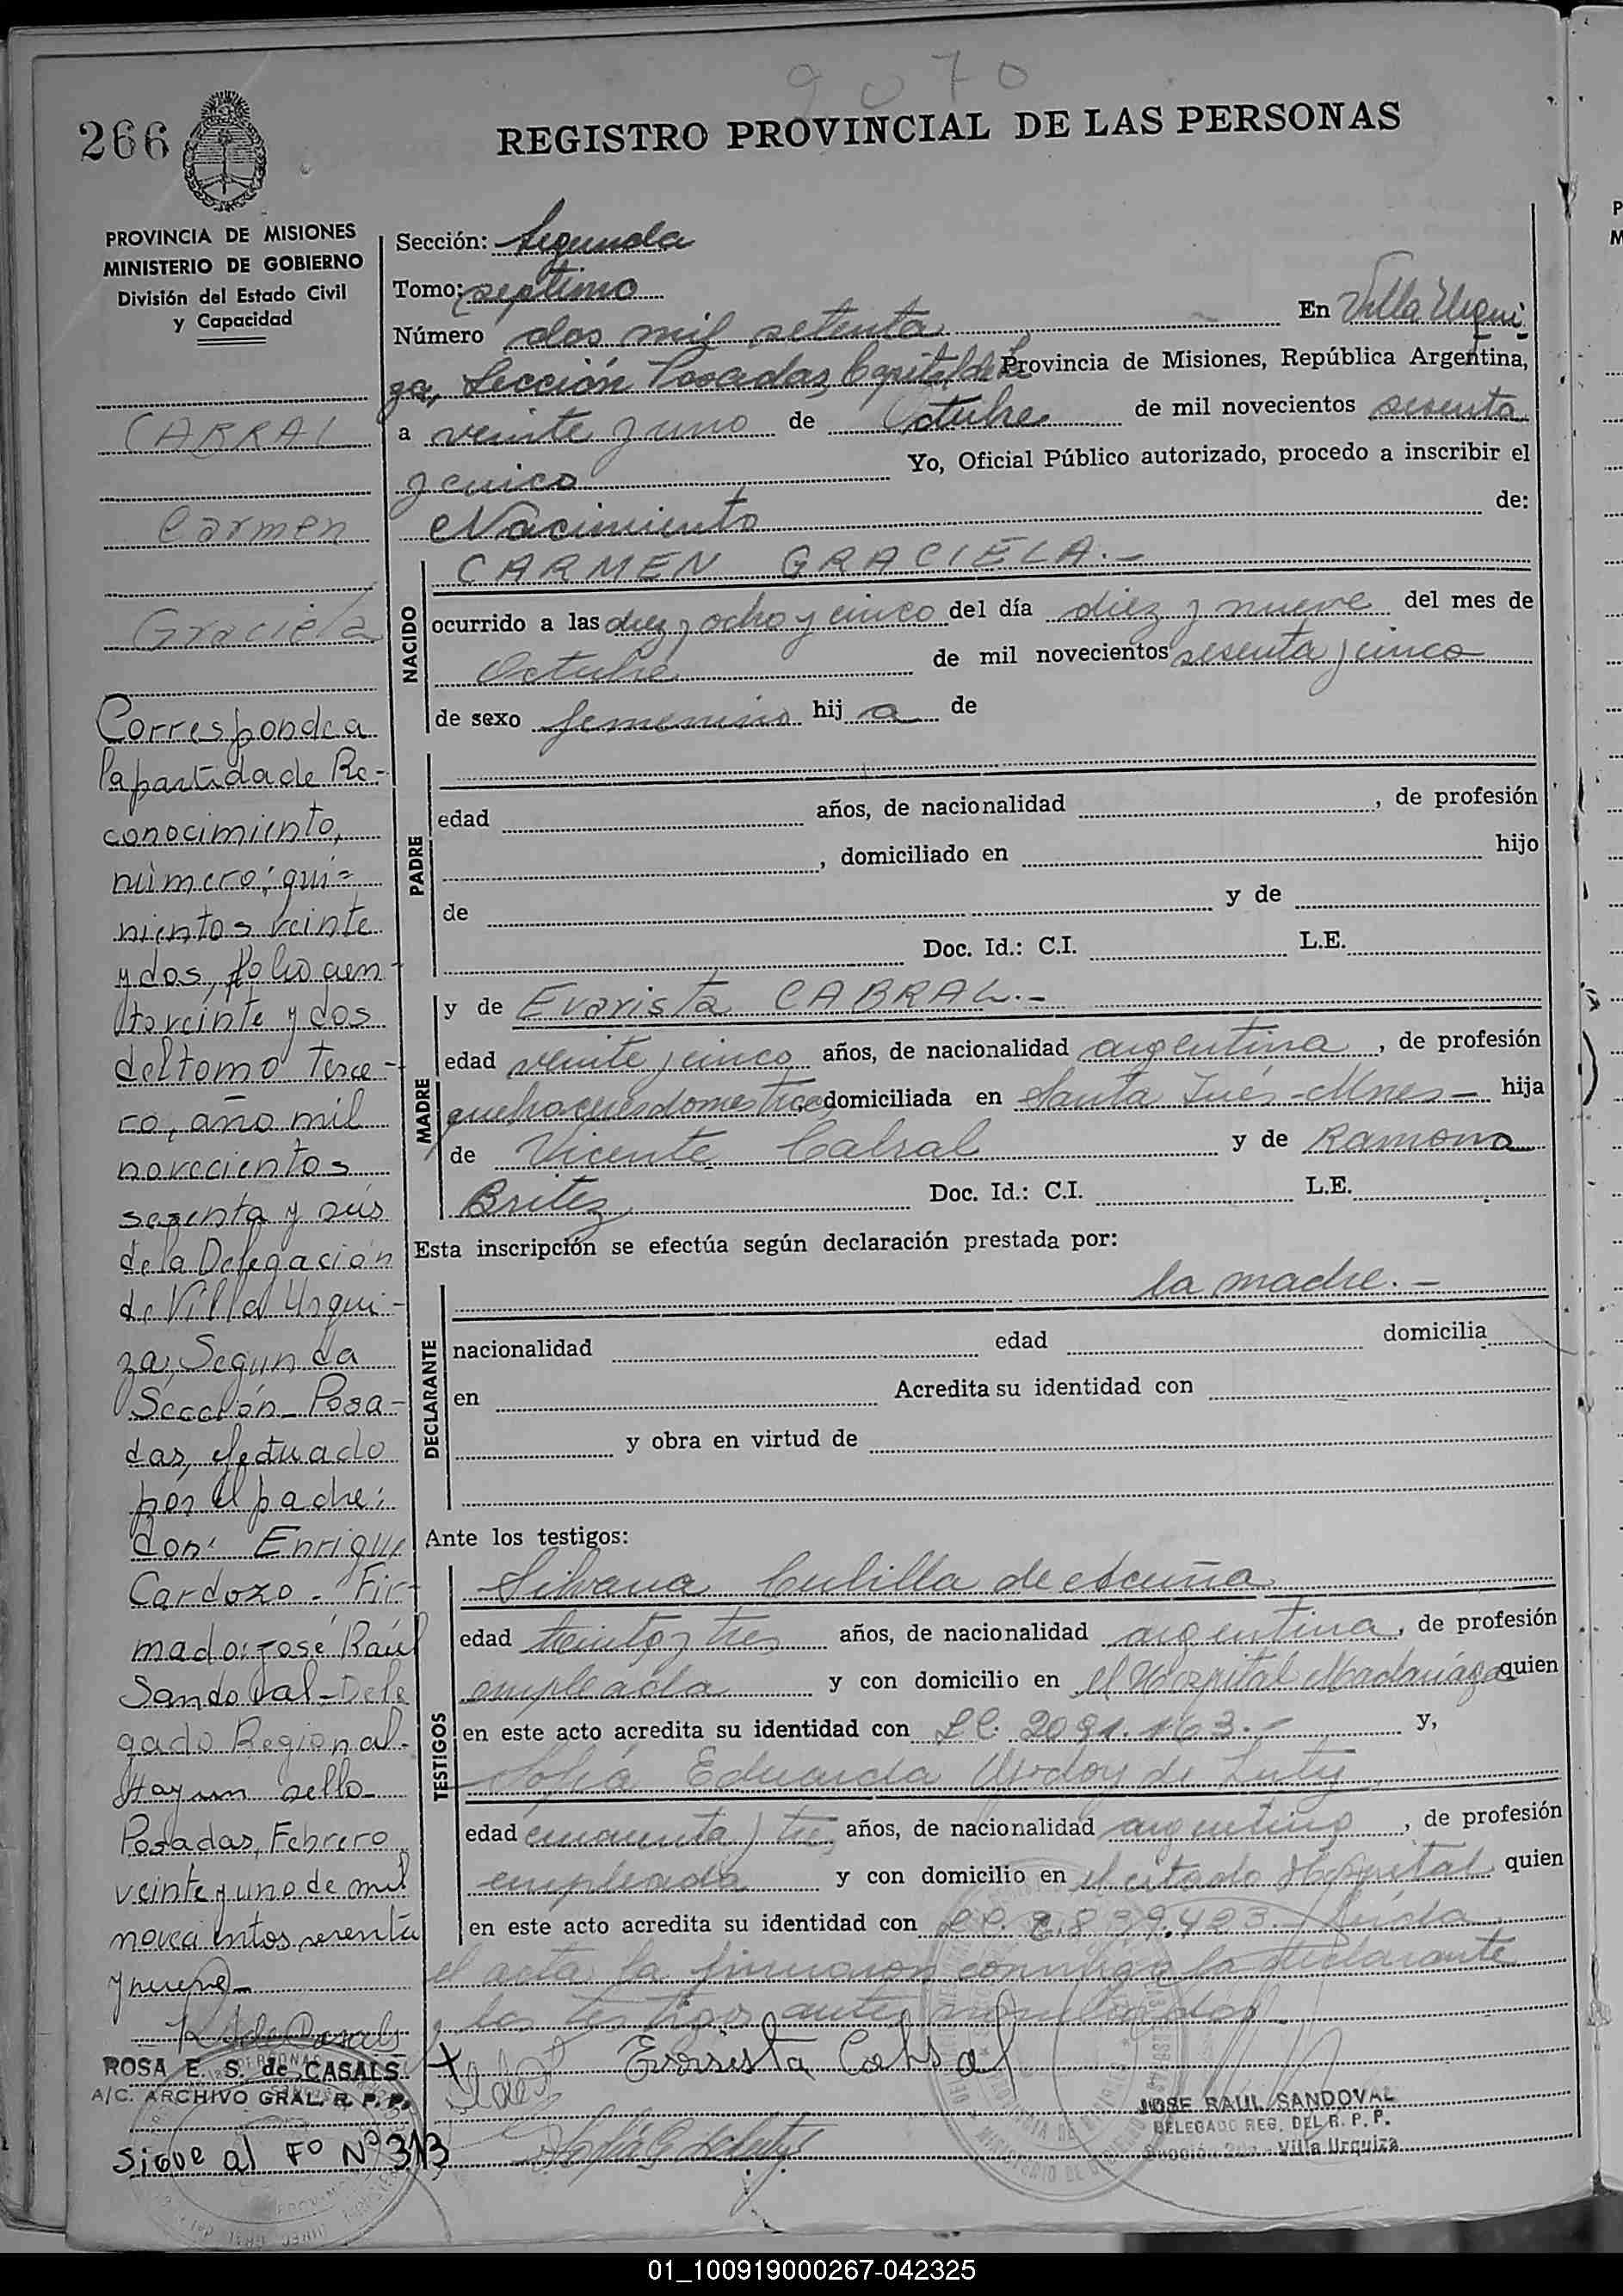 2070
266
REGISTRO PROVINCIAL DE LAS PERSONAS
PROVINCIA DE MISIONES
MINISTERIO DE GOBIERNO
División del Estado Civil
y Capacidad
CABRAL
Carmen
Graciela
Corresponde a
la partida de Re-
conocimiento,
número: qui-
nientos veinte
y dos, folio cien-
to veinte y dos
del tomo terce-
ro, año mil
novecientos
sesenta y seis
de la Delegación
de Villa Urqui-
za, Segunda
Sección - Posa-
das, efectuado
por el padre:
don: Enrique
Cardozo. Fir-
mado: José Raúl
Sandoval - Dele
gado Regional.
Hay un sello
Posadas, Febrero
veinte y uno de mil
novecientos setenta
y nueve -
ROSA E. S. de CASALS
A/C. ARCHIVO GRAL. R. P. P.
Sigue al Fº Nº 313
Sección: Segunda
Tomo: septimo
Número dos mil setenta En Villa Urqui
za, Sección Posadas, Capital de la Provincia de Misiones, República Argentina,
a veinte y uno de Octubre de mil novecientos sesenta
y cinco Yo, Oficial Público autorizado, procedo a inscribir el
Nacimiento de:
NACIDO
CARMEN GRACIELA.-
ocurrido a las diez y ocho y cinco del día diez y nueve del mes de
Octubre de mil novecientos sesenta y cinco
de sexo femenino hij a de
PADRE
edad años, de nacionalidad , de profesión
, domiciliado en hijo
de y de
Doc. Id.: C.I. L.E.
MADRE
y de Evarista CABRAL.-
edad veinte y cinco años, de nacionalidad argentina, de profesión
quehaceres domesticos, domiciliada en Santa Inés - Mnes - hija
de Vicente Cabral y de Ramona
Britez Doc. Id.: C.I. L.E.
Esta inscripción se efectúa según declaración prestada por:
DECLARANTE
la madre.-
nacionalidad edad domicilia
en Acredita su identidad con
y obra en virtud de
Ante los testigos:
TESTIGOS
Silvana Cubilla de Acuña
edad treinta y tres años, de nacionalidad argentina, de profesión
empleada y con domicilio en el Hospital Madariaga quien
en este acto acredita su identidad con LC. 2091.163.- y,
Sofía Eduarda Godoy de Luty
edad cincuenta y tres años, de nacionalidad argentina, de profesión
empleada y con domicilio en el citado Hospital quien
en este acto acredita su identidad con LC. 2.839.423. Leída
el acta la firmaron conmigo la declarante
y los testigos antes nombrados.
Evarista Cabral
JOSE RAUL SANDOVAL
DELEGADO REG. DEL R. P. P.
Sección 2da. Villa Urquiza
01_100919000267-042325